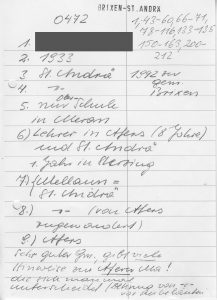 BRIXEN-ST.ANDRÄ
0472
1,43-60,66-71,
78-116,133-135
150-163,200-
212
1.
2. 1933
3. St. Andrä 1942 zu
4. -"- gem
Brixen
5. nur Schule
in Meran
6) Lehrer in Afers (8 Jahre)
und St. Andrä
1. Jahr in Sterzing
7) Mellaun =
St. Andrä
8.) -"- (von Afers
zugewandert)
9.) Afers
Sehr guter Gw. gibt viele
Hinweise zu Afers Ma!
die sich man
unterscheidet